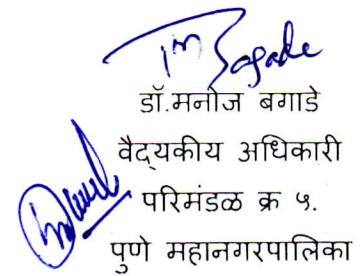 डॉ.मनोज बगाडे
वैद्यकीय अधिकारी
परिमंडळ क्र ५.
पुणे महानगरपालिका